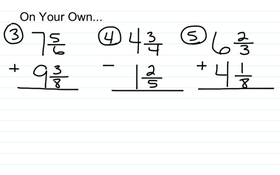 On Your Own...
③ 7 5/6 ④ 4 3/4 ⑤ 6 2/3
+ 9 3/8 - 1 2/5 + 4 1/8